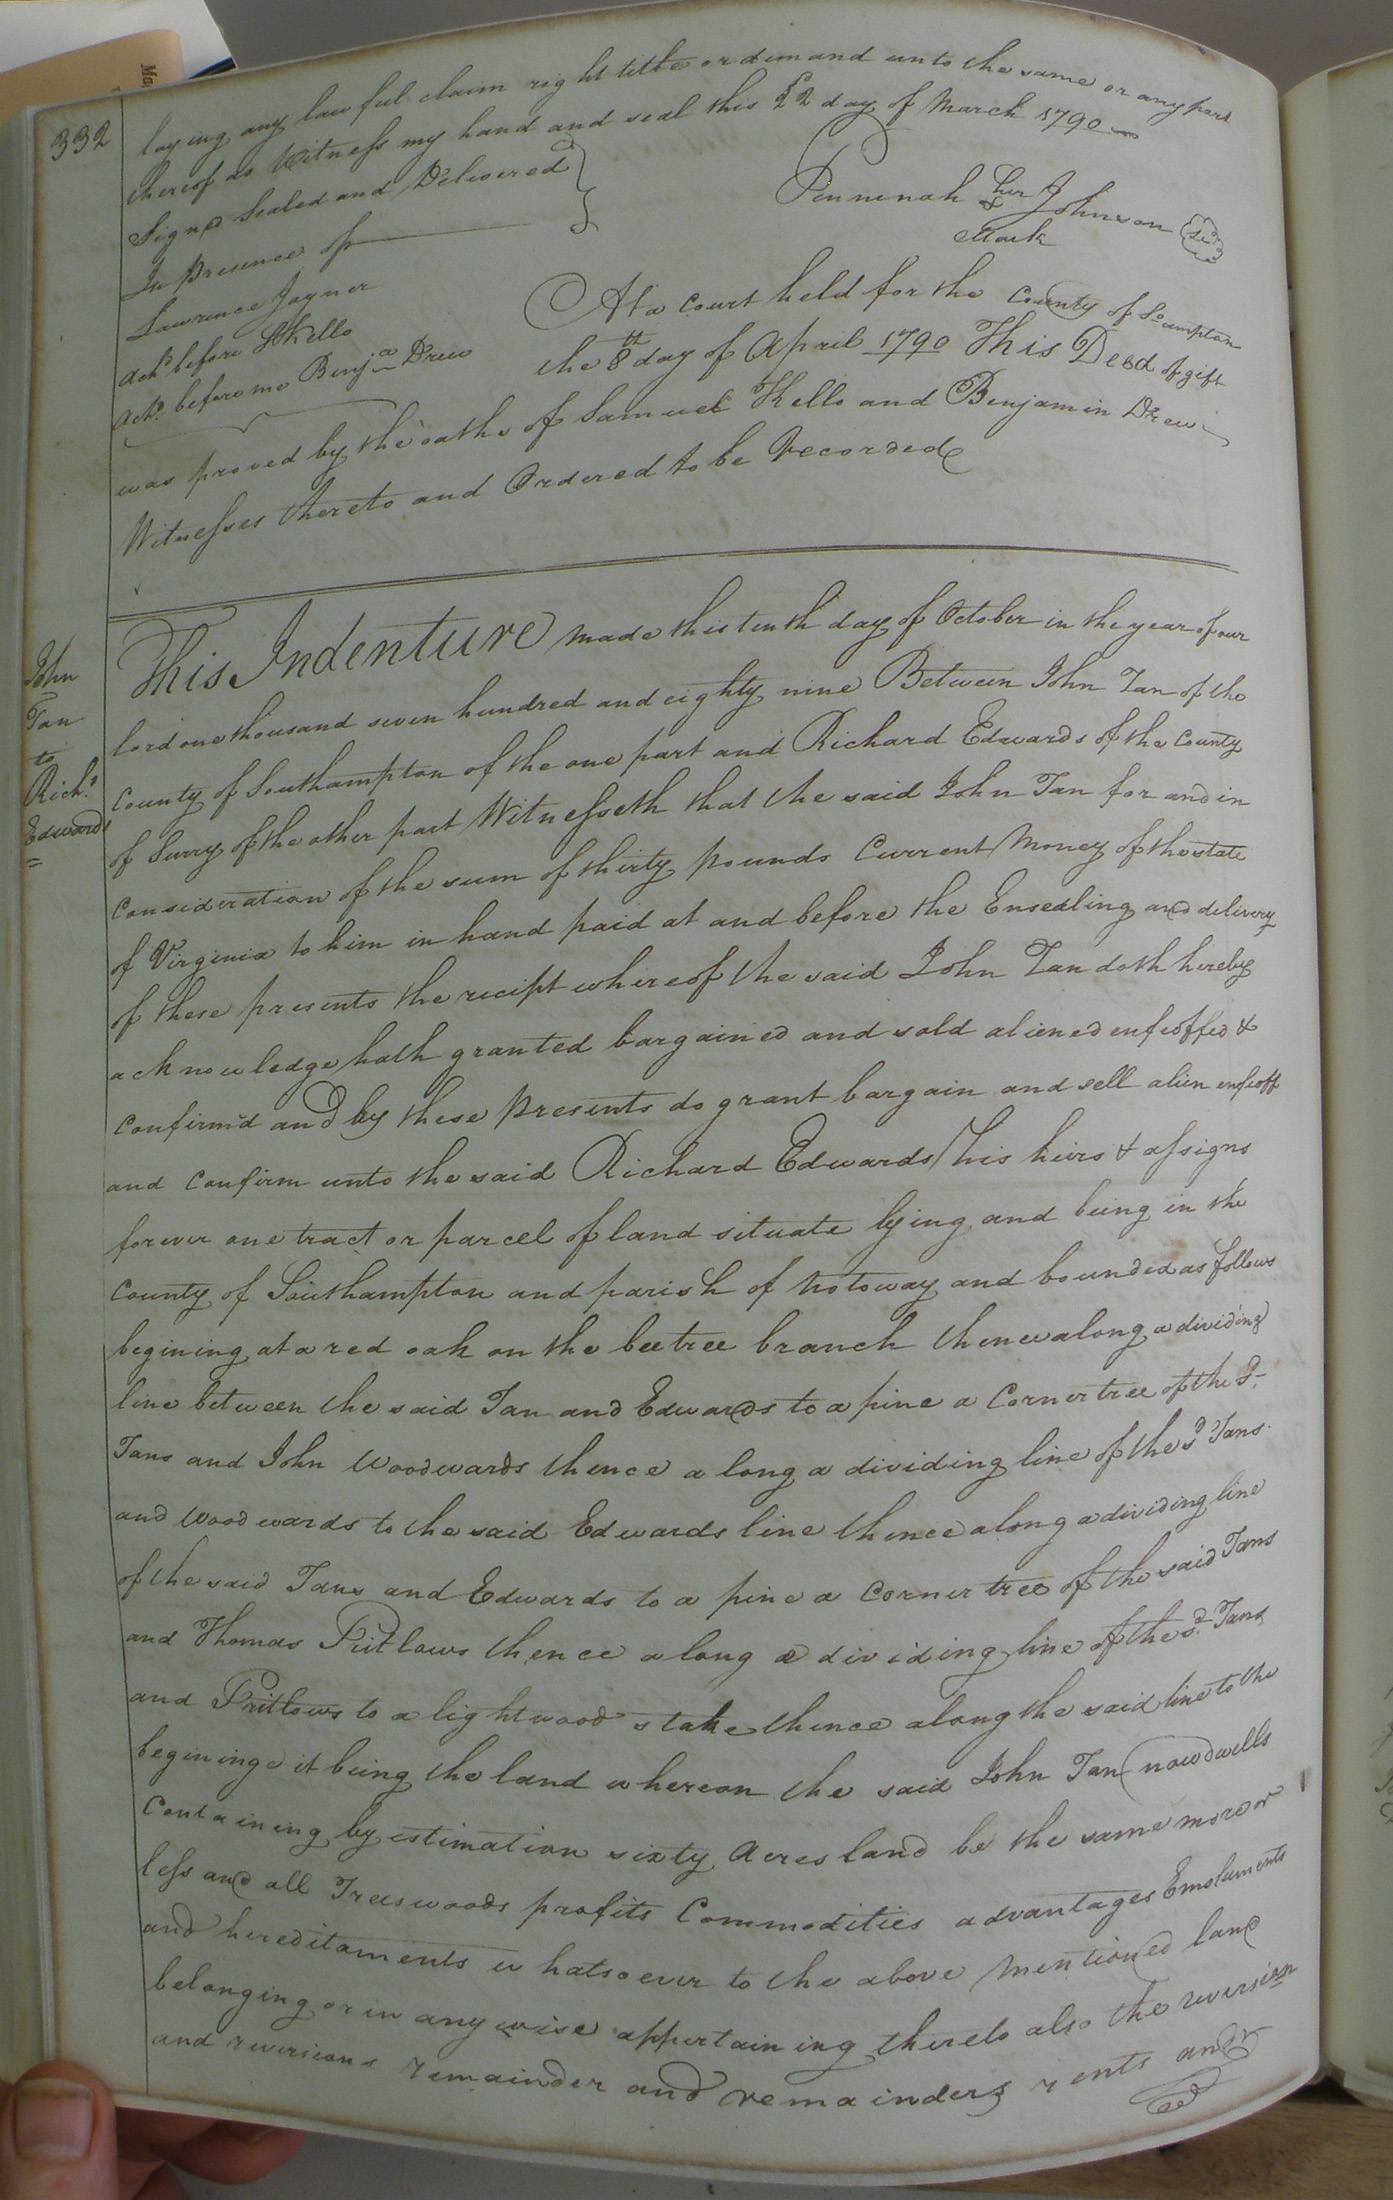 332
laying any lawful claim right title or demand unto the same or any part
thereof as Witness my hand and seal this 22 day of March 1790
Signed Sealed and Delivered
In Presence of
Penninah her Johnson
x
Mark
Lawrence Joyner
Ackd before S Kello
Ackd before me Benja Drew
At a Court held for the County of So ampton
the 8th day of April 1790 This Deed of gift
was proved by the oaths of Samuel Kello and Benjamin Drew
Witnesses thereto and Ordered to be Recorded
John
Tan
to
Richd
Edwards
This Indenture made this tenth day of October in the year of our
lord one thousand seven hundred and eighty nine Between John Tan of the
County of Southampton of the one part and Richard Edwards of the County
of Surry of the other part Witnesseth that the said John Tan for and in
Consideration of the sum of thirty pounds Current Money of the state
of Virginia to him in hand paid at and before the Ensealing and delivery
of these presents the recipt whereof the said John Tan doth hereby
acknowledge hath granted bargained and sold aliened enfeoffed &
Confirmd and by these presents do grant bargain and sell alien enfeoff
and Confirm unto the said Richard Edwards his heirs & assigns
forever one tract or parcel of land situate lying and being in the
County of Southampton and parish of Notoway and bounded as follows
begining at a red oak on the beetree branch thence along a dividing
line between the said Tan and Edwards to a pine a Corner tree of the sd
Tans and John Woodwards thence a long a dividing line of the sd Tans
and Woodwards to the said Edwards line thence along a dividing line
of the said Tans and Edwards to a pine a Corner tree of the said Tans
and Thomas Pritlows thence a long a dividing line of the sd Tans
and Pritlows to a lightwood stake thence along the said line to the
begininge it being the land whereon the said John Tan now dwells
Containing by estimation sixty Acres land be the same more or
less and all Trees woods profits Commodities advantages Emoluments
and hereditaments whatsoever to the above mentioned land
belonging or in any wise appertaining thereto also the reversion
and reversions remainder and remainders rents and